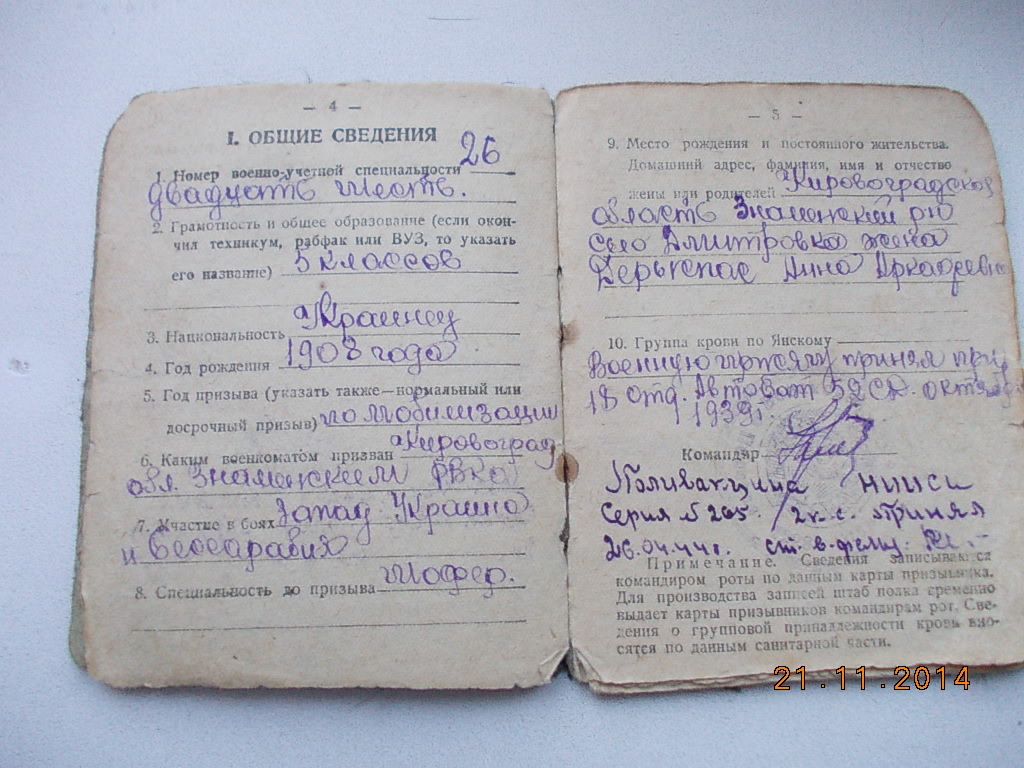 — 4 —
I. ОБЩИЕ СВЕДЕНИЯ
1. Номер военно-учетной специальности 26
двадцать шесть.
2. Грамотность и общее образование (если окон-
чил техникум, рабфак или ВУЗ, то указать
его название) 5 классов
3. Национальность Украинец
4. Год рождения 1903 года
5. Год призыва (указать также—нормальный или
досрочный призыв) по мобилизации
6. Каким военкоматом призван Кировоград
обл. Знаменским РВК
7. Участие в боях Запад. Украина
и Бессарабия
8. Специальность до призыва шофер.
— 5 —
9. Место рождения и постоянного жительства.
Домашний адрес, фамилия, имя и отчество
жены или родителей Кировоградская
область Знаменский р-н
село Дмитровка жена
Анна Аркадеевна
10. Группа крови по Янскому
Военную присягу принял при
18 отд. Автобат 52 СД. октябрь
1939 г.
Командир
Поливакцина НИИСИ
Серия № 265. 2 к.с. принял
26.04.44г. ст. в-фельд.
Примечание. Сведения записываются
командиром роты по данным карты призывника.
Для производства записей штаб полка временно
выдает карты призывников командирам рот. Све-
дения о групповой принадлежности крови вно-
сятся по данным санитарной части.
21.11.2014